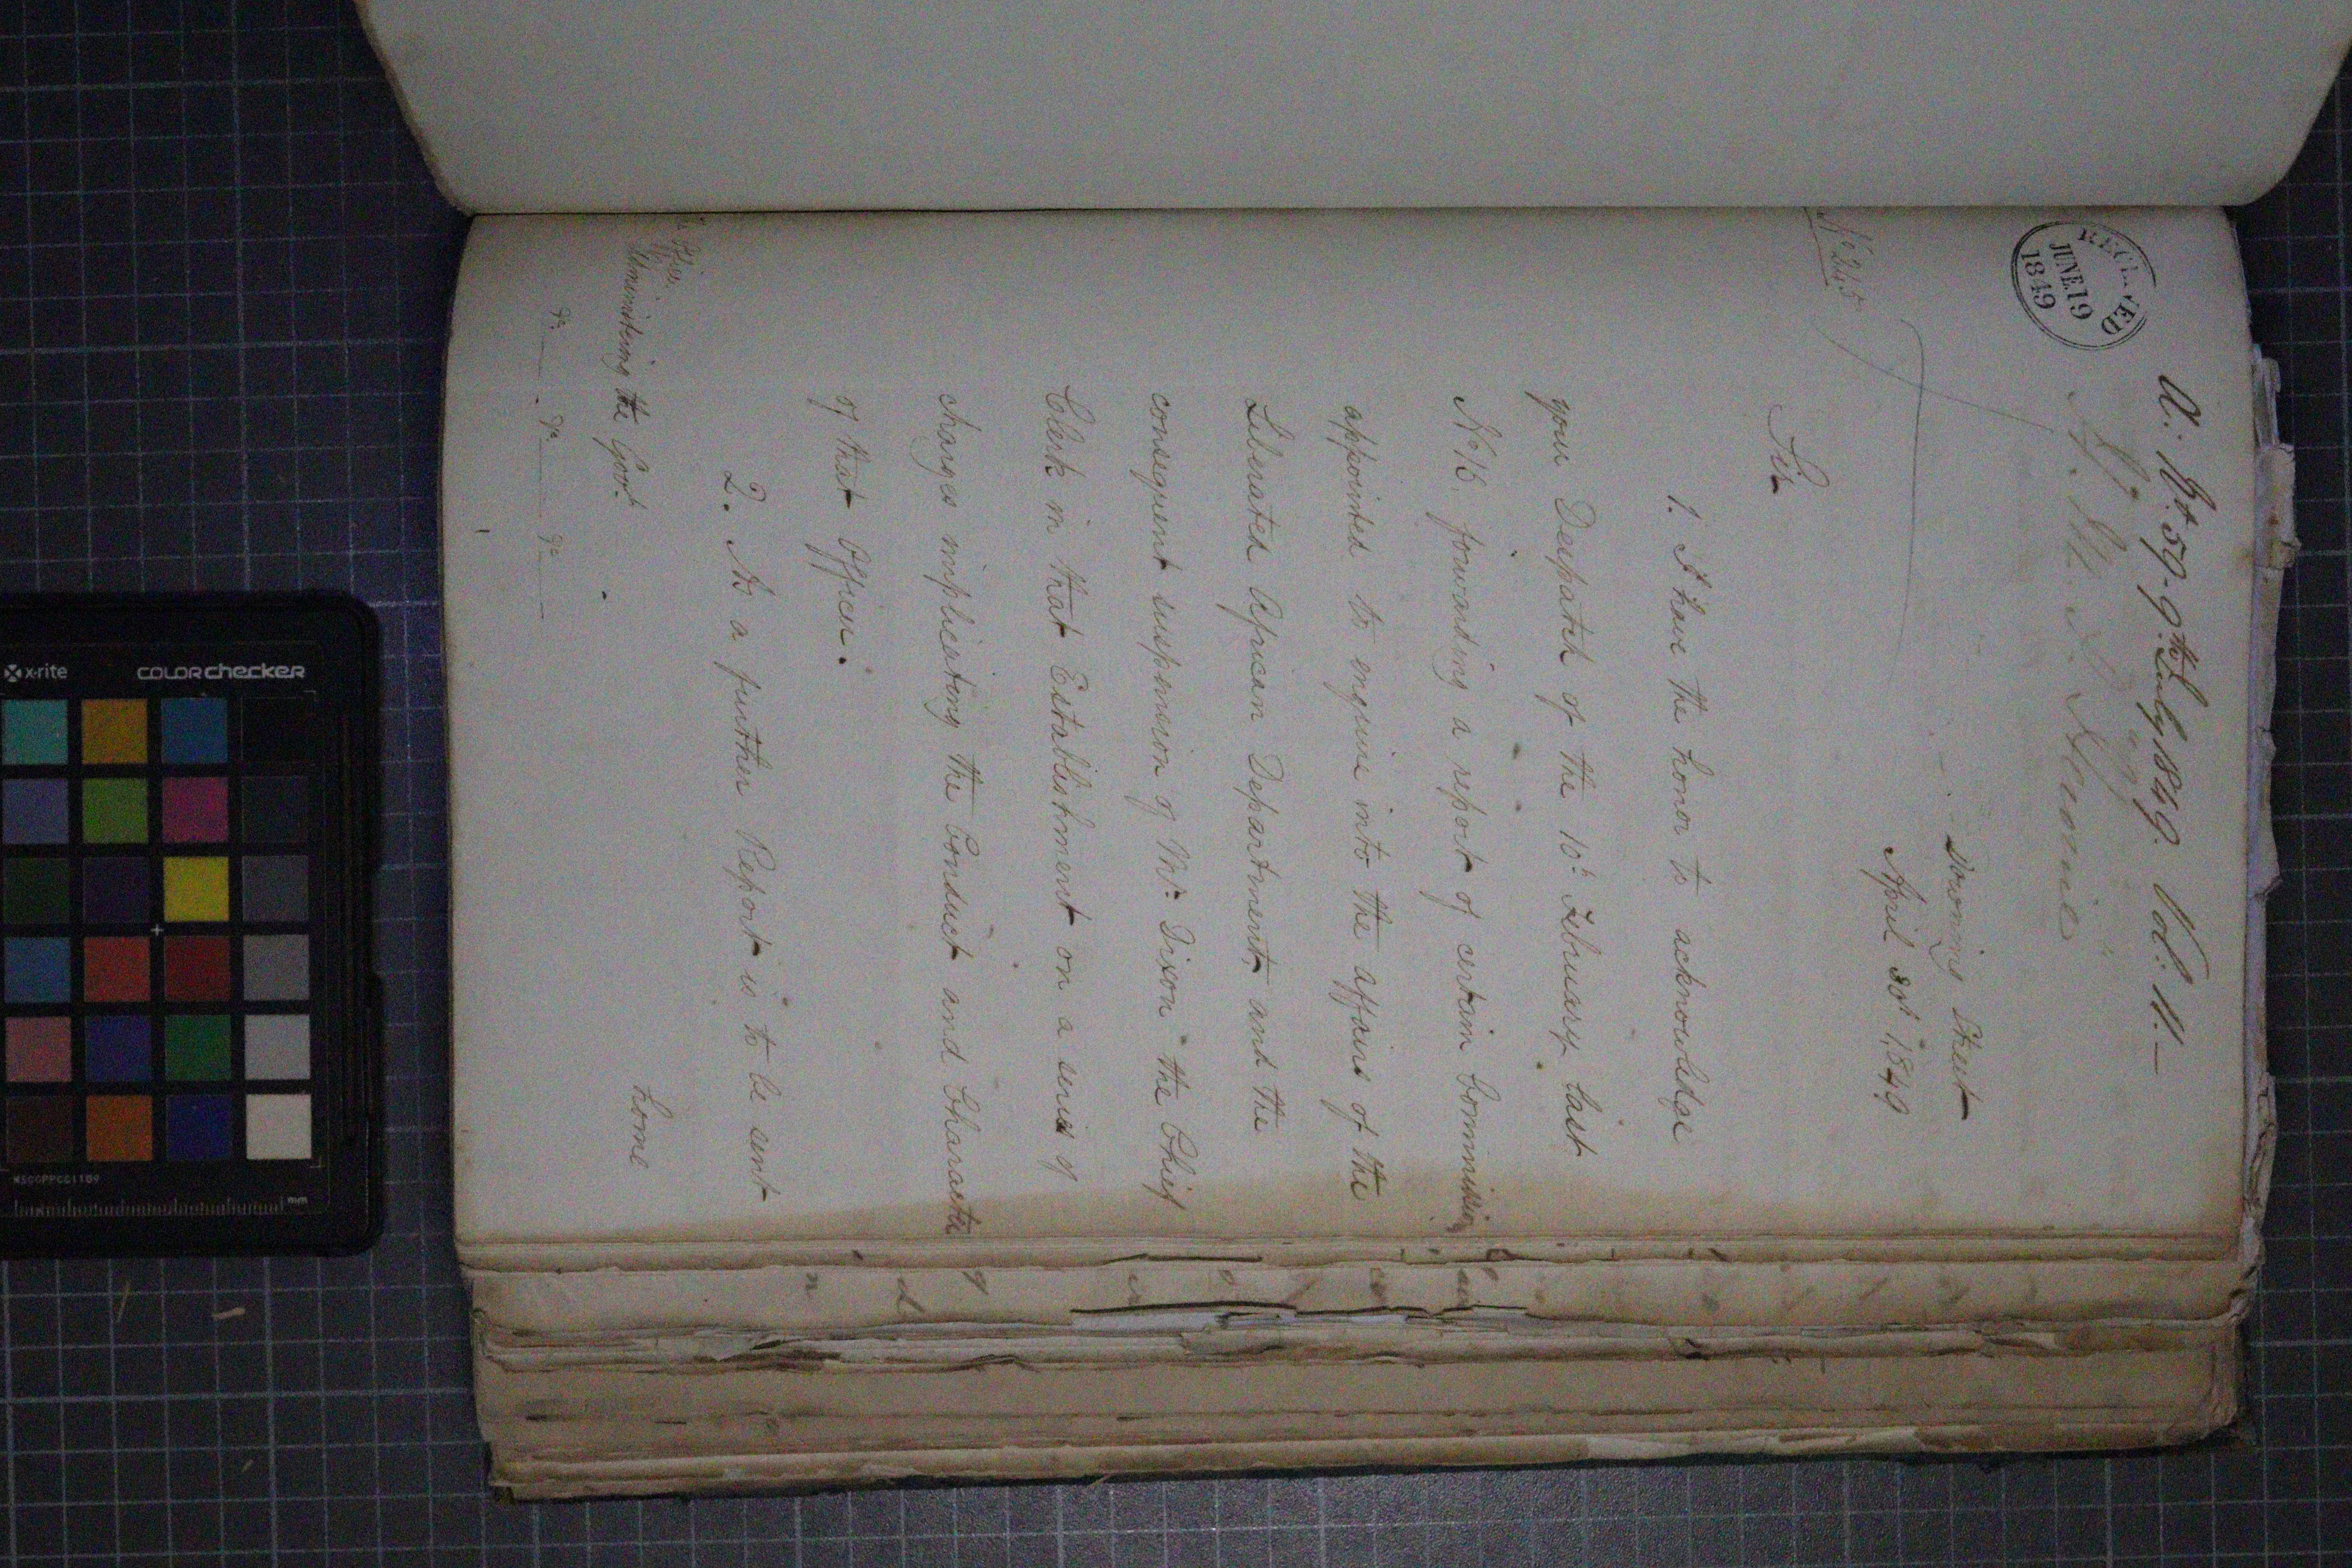 A. 10th 59. 9th July 1849. Vol: 11.—
RECEIVED
JUNE 19
1849
Downing Street
April 30th 1849
No 245
Sir
1. I have the honor to acknowledge
your Despatch of the 10th February last
No 16, forwarding a report of certain Commission
appointed to enquire into the affairs of the
Liberated African Department, and the
consequent suspension of Mr Dixon the Chief
Clerk in that Establishment on a series of
charges implicating the Conduct and Character
of that Officer.
2. As a further Report is to be sent
home
Officer
Administering the Govt
&c &c &c
x-rite
colorchecker
MSCCPPCC1109
mm